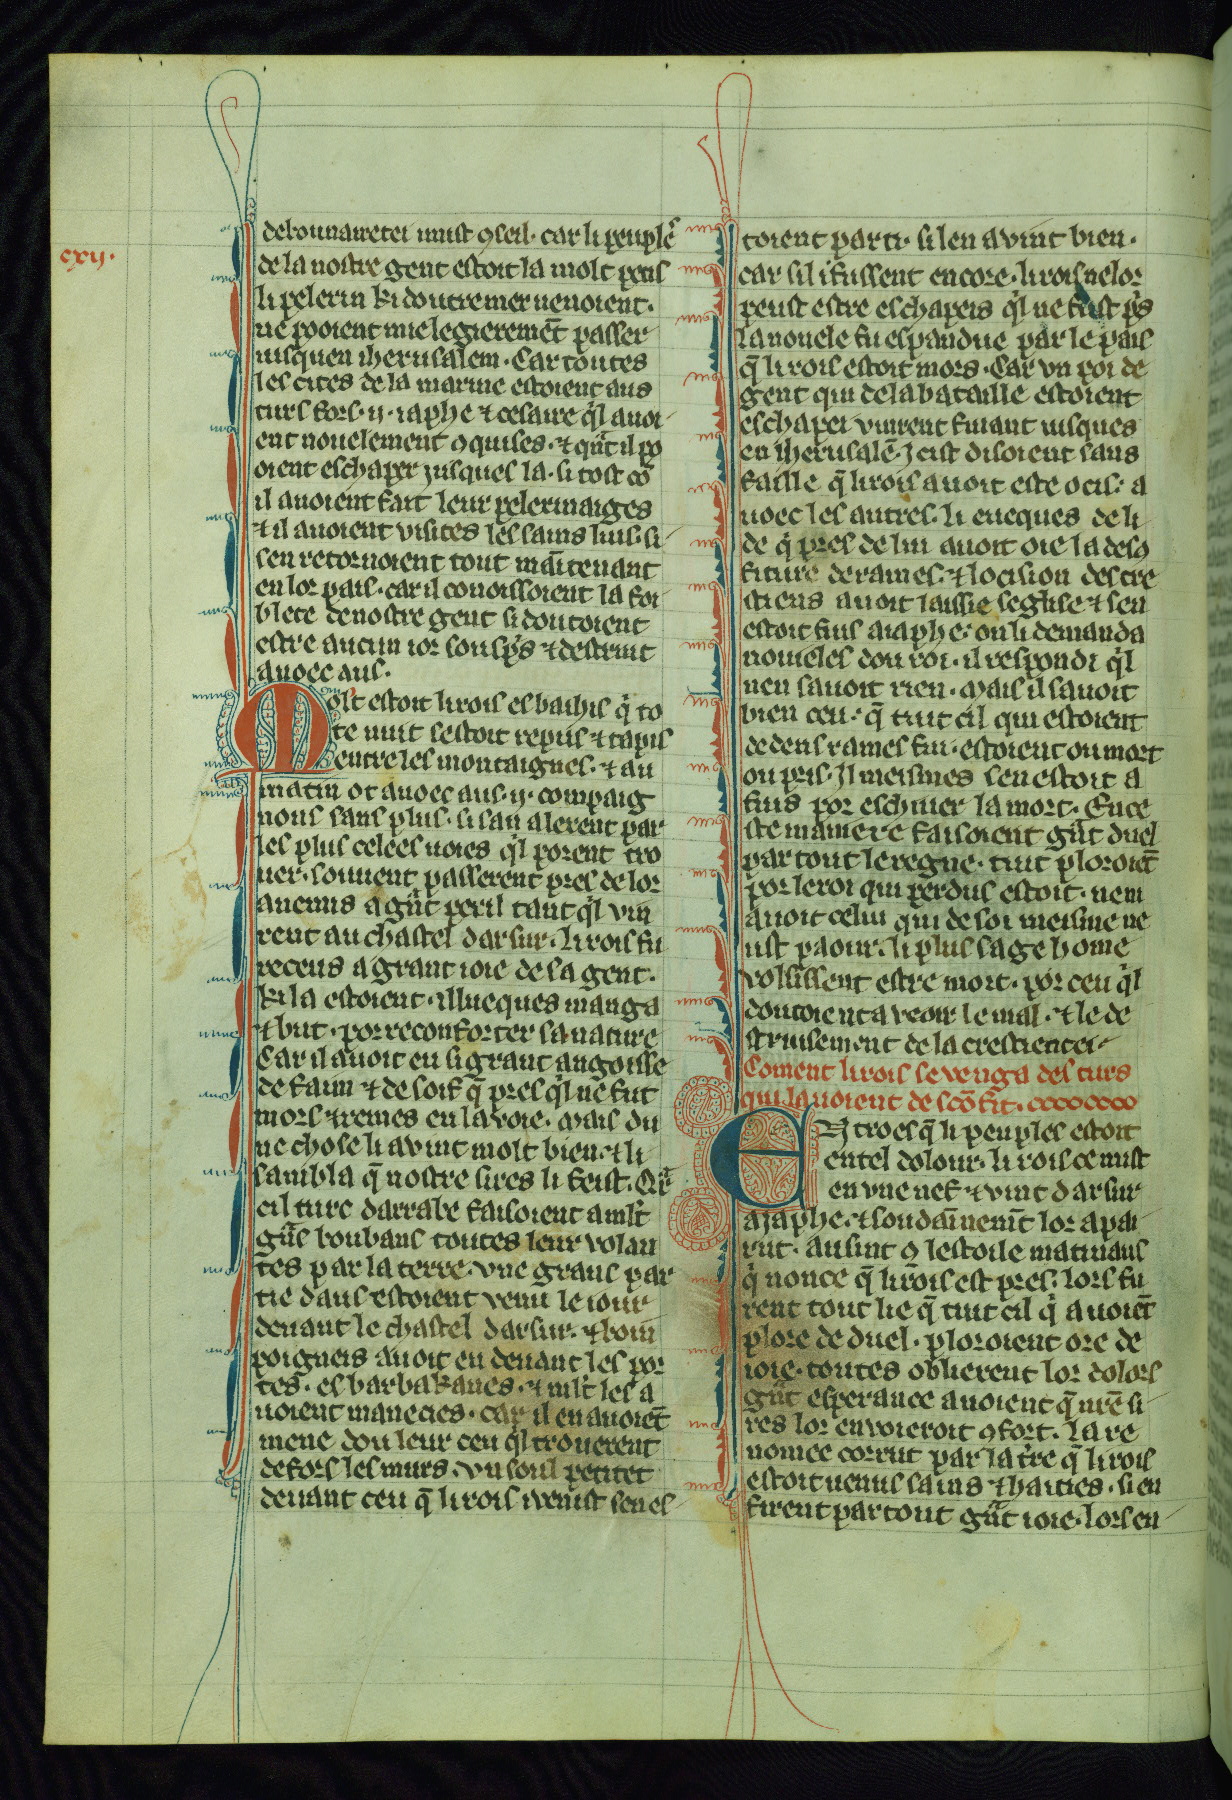 cxij.
debonnairetei mist ɔseil. car li peuple
de la nostre gent estoit la molt peus
li pelerin ki doutremer uenoient.
ne pooient mie legieremēt passer
iusquen iherusalem. Car toutes
les cites de la marine estoient aus
turs fors .ij. iaphe ⁊ cesaire q̇l auoi
ent nouelement ɔquises. ⁊ quāt il po
oient eschaper iusques la. si tost cō
il auoient fait leur pelerinaiges
⁊ il auoient visites les sains lius. si
sen retornoient tout maītenant
en lor pais. car il conoissoient la foi
blete de nostre gent si doutoient
estre aucun ior souspris ⁊ destruit
auoec aus.
Molt estoit li rois esbaihis q̇ to
te nuit sestoit repus ⁊ tapis
entre les montaignes. ⁊ au
matin ot auoec aus .ij. compaig
nons sans plus. si san alerent par
les plus celees uoies q̇l porent tro
uer. souuent passerent pres de lor
anemis a grāt peril tant q̇l vin
rent au chastel darsur. li rois fu
receus a grant ioie de sa gent.
ki la estoient. illueques manga
⁊ but. por reconforter sa nature
Car il auoit eu si grant angoisse
de faim ⁊ de soif q̄ pres q̇l ne fut
mors ⁊ remes en la voie. Mais du
ne chose li avint molt bien. ⁊ li
sambla q̄ nostre sires li feist. Qr̄
cil turc darrabe faisoient a mlt̄
grās boubans toutes leur volan
tes par la terre. vne grans par
tie daus estoient venu le iour
deuant le chastel darsur. ⁊ boin
poigneis auoit eu deuant les por
tes. es barbakanes. ⁊ mlt̄ les a
uoient manecies. car il en auoiēt
mene dou leur ceu q̇l trouerent
defors les murs. vn soul petitet
deuant ceu q̄ li rois i venist sen es
toient parti. si len avint bien.
car sil i fussent encore. li rois ne lor
peust estre eschapeis q̇l ne fust pris
la nouele fu espandue par le pais
q̄ li rois estoit mors. Car vn poi de
gent qui de la bataille estoient
eschapei vinrent fuiant iusques
en iherusalē. ⁊ cist disoient sans
faille q̄ li rois auoit este ocis. a
uoec les autres. li eueques de li
de q̇ pres de lui auoit oie la descɔ̄
fiture de rames. ⁊ locision des cre
stiens auoit laissie seglise ⁊ sen
estoit fuis a iaphe. on li demanda
nouueles dou roi. il respondi q̇l
nen sauoit rien. Mais il sauoit
bien ceu. q̄ tuit cil qui estoient
dedens rames fui. estoient ou mort
ou pris. Il meismes sen estoit a
fuis por eschiuer la mort. En ce
ste maniere faisoient grāt duel
par tout le regne. tuit ploroiēt
por le roi qui perdus estoit. nem
auoit celui qui de soi meisme ne
ust paour. li plus sage home
volsissent estre mort. por ceu q̇l
doutoient a veoir le mal. ⁊ le de
struisement de la crestientei.
Coment li rois se venga des turs
qui lauoient descōfit.
Entroes q̄ li peuples estoit
en tel dolour. li rois ce mist
en vne nef. ⁊ vint darsur
a japhe. ⁊ soudaīnemīt lor apai
rut. ausint ɔ lestoile matinaus
q̇ nonce q̄ li rois est pres. lors fu
rent tout lie q̄ tuit cil q̇ auoiēt
plore de duel. ploroient ore de
ioie. toutes oblierent lor dolors
grāt esperance auoient q̄ nr̄e si
res lor envoieroit ɔfort. la re
nomee corrut par la t̄re q̄ li rois
estoit uenus sains ⁊ haities. si en
firent par tout grāt ioie. lors en